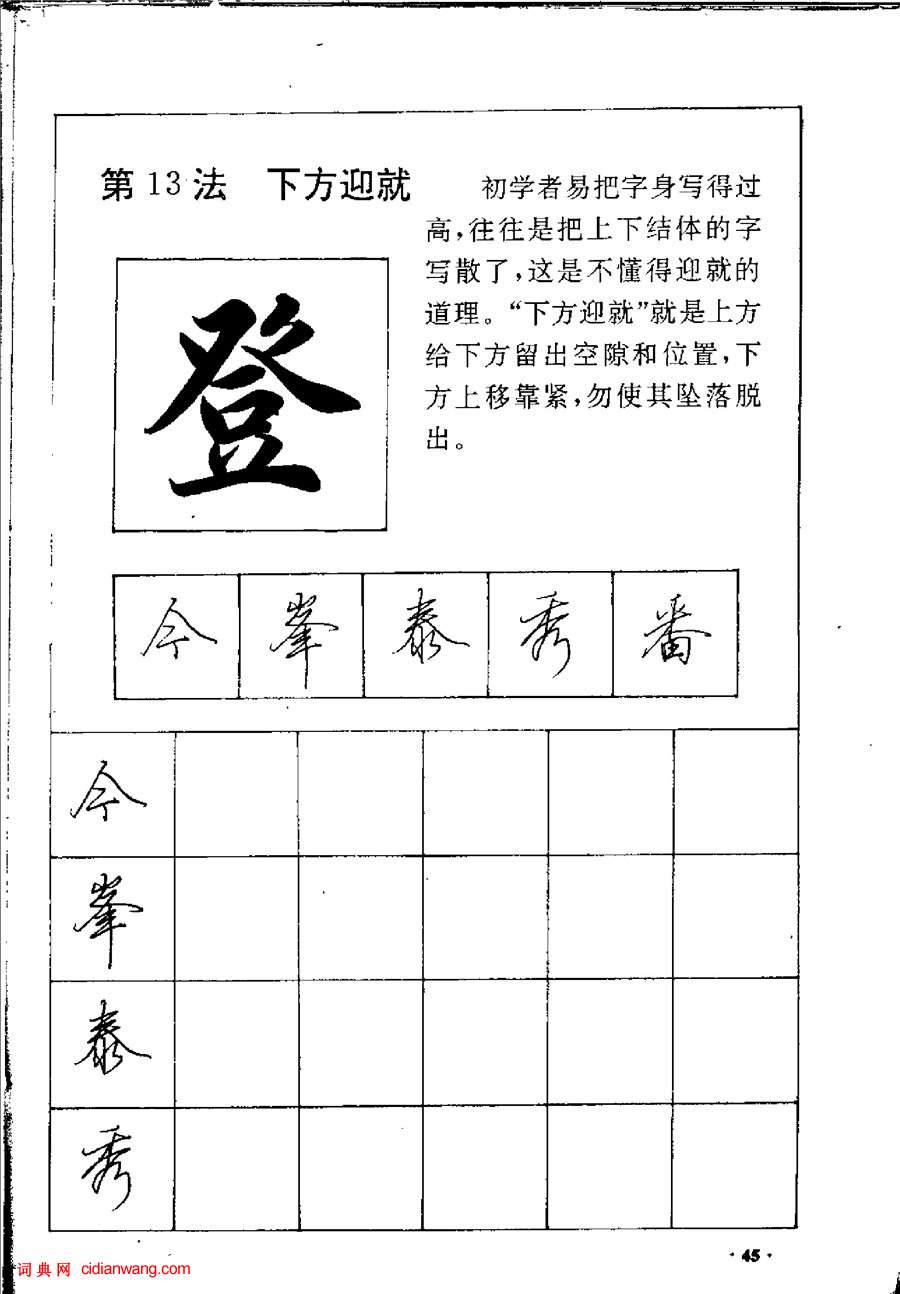 第13法 下方迎就
初学者易把字身写得过
高,往往是把上下结体的字
写散了,这是不懂得迎就的
道理。“下方迎就”就是上方
给下方留出空隙和位置,下
方上移靠紧,勿使其坠落脱
出。
登
今 峯 泰 秀 番
今
峯
泰
秀
·45·
词典网 cidianwang.com